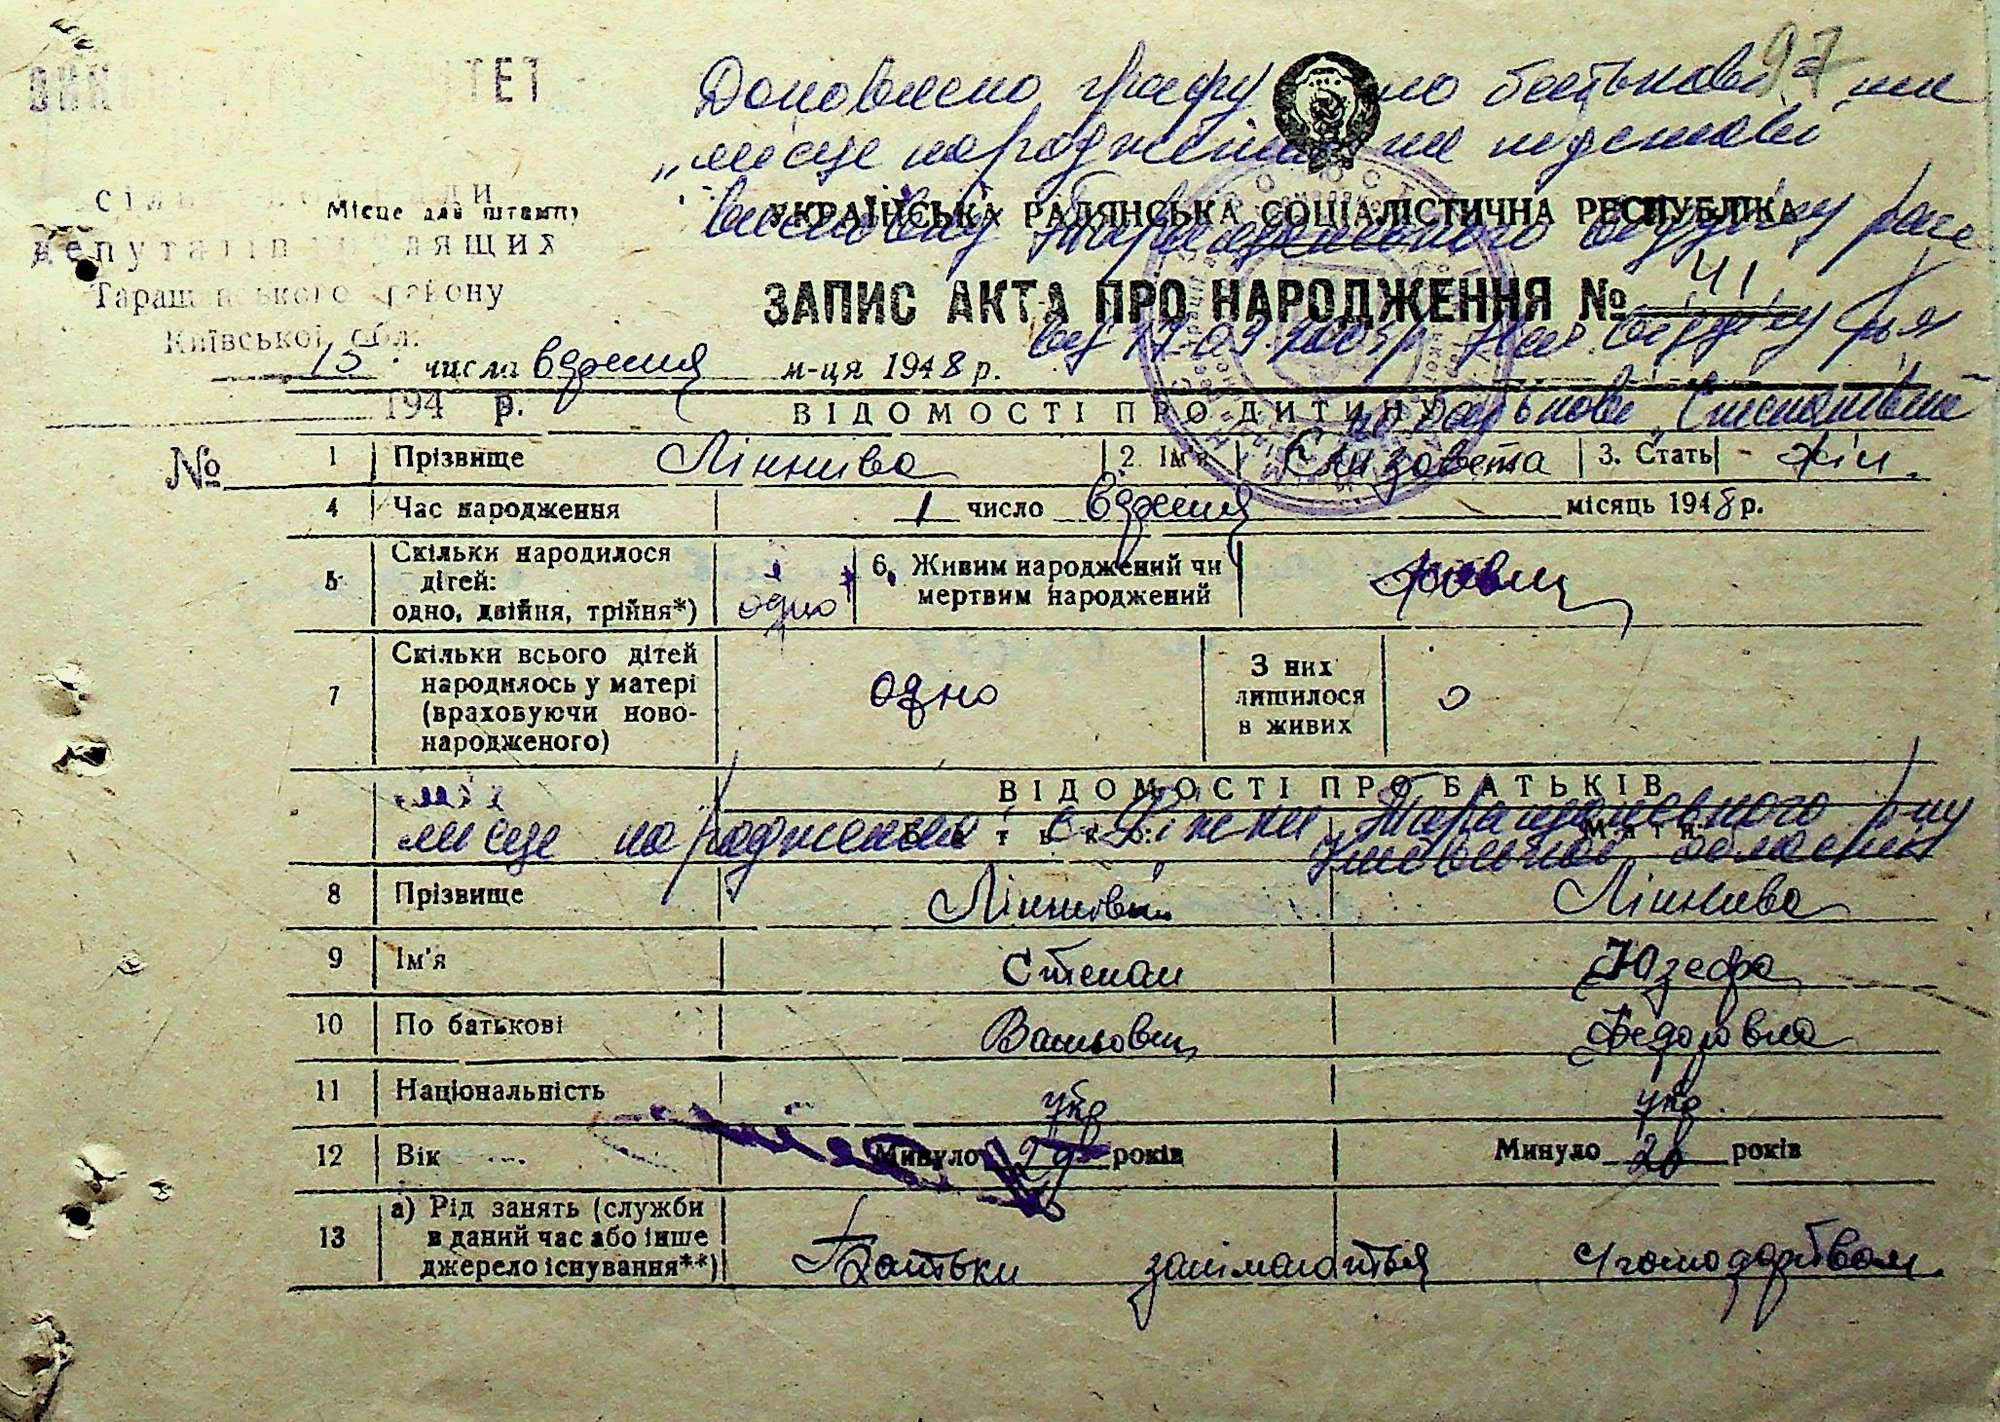 97
Доповнено графу по батькові та
„місце народження на підставі
УКРАЇНСЬКА РАДЯНСЬКА СОЦІАЛІСТИЧНА РЕСПУБЛІКА
висновку Таращанського відділу
ЗАПИС АКТА ПРО НАРОДЖЕННЯ № 41
від 17.09.
по батькові „Степанівна"
сільської ради
Місце для штампу
депутатів трудящих
Таращанського району
Київської обл.
15 числа вдресня м-ця 1948 р.
194 р.
№
ВІДОМОСТІ ПРО ДИТИНУ
1 Прізвище Ліннива 2. Ім'я Єлизовета 3. Стать - жін.
4 Час народження 1 число вдресня місяць 1948 р.
5 Скільки народилося дітей: одно, двійня, трійня*) 1 одно 6. Живим народжений чи мертвим народжений живим
7 Скільки всього дітей народилось у матері (враховуючи новонародженого) одно З них лишилося в живих
ВІДОМОСТІ ПРО БАТЬКІВ
місце народження с. Ріжки Таращанського р-ну
Київської області
Батько Мати
8 Прізвище Ліннивий Ліннива
9 Ім'я Степан Юзефа
10 По батькові Федоровна
11 Національність укр укр.
12 Вік Минуло 29 років Минуло 28 років
13 а) Рід занять (служби в даний час або інше джерело існування**) Батьки занімаються